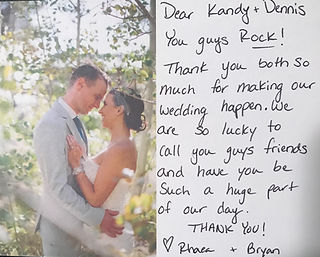 Dear Kandy + Dennis
You guys ROCK!
Thank you both so
much for making our
wedding happen. We
are so lucky to
call you guys friends
and have you be
Such a huge part
of our day.
THANK YOU!
♡ Rhaea + Bryan